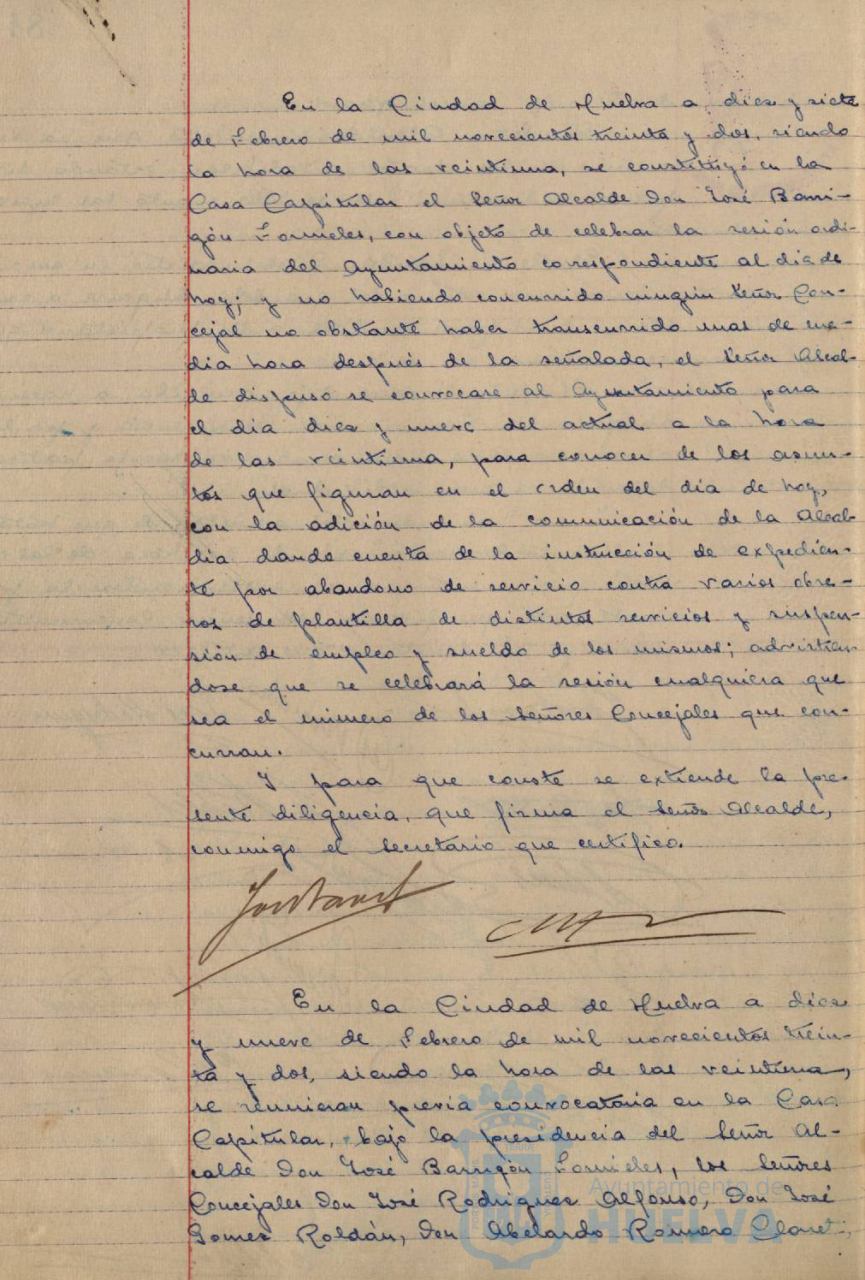 En la Ciudad de Huelva a diez y siete
de Febrero de mil novecientos treinta y dos, siendo
la hora de las veintiuna, se constituyó en la
Casa Capitular el Señor Alcalde Don José Barri-
gón Fornieles, con objeto de celebrar la sesión ordi-
naria del Ayuntamiento correspondiente al día de
hoy; y no habiendo concurrido ningún Señor Con-
cejal no obstante haber transcurrido mas de me-
dia hora después de la señalada, el Señor Alcal-
de dispuso se convocase al Ayuntamiento para
el día diez y nueve del actual a la hora
de las veintiuna, para conocer de los asun-
tos que figuran en el orden del día de hoy,
con la adición de la comunicación de la Alcal-
día dando cuenta de la instrucción de expedien-
te por abandono de servicio contra varios obre-
ros de plantilla de distintos servicios y suspen-
sión de empleo y sueldo de los mismos; advirtien-
dose que se celebrará la sesión cualquiera que
sea el número de los Señores Concejales que con-
curran.
Y para que conste se extiende la pre-
sente diligencia, que firma el Señor Alcalde,
conmigo el secretario que certifico.
En la Ciudad de Huelva a diez
y nueve de Febrero de mil novecientos trein-
ta y dos, siendo la hora de las veintiuna,
se reunieron previa convocatoria en la Casa
Capitular, bajo la presidencia del Señor Al-
calde Don José Barrigón Fornieles, los Señores
Concejales Don José Rodriguez Alfonso, Don José
Gomez Roldán, Don Abelardo Romero Claret,
Ayuntamiento de
HUELVA